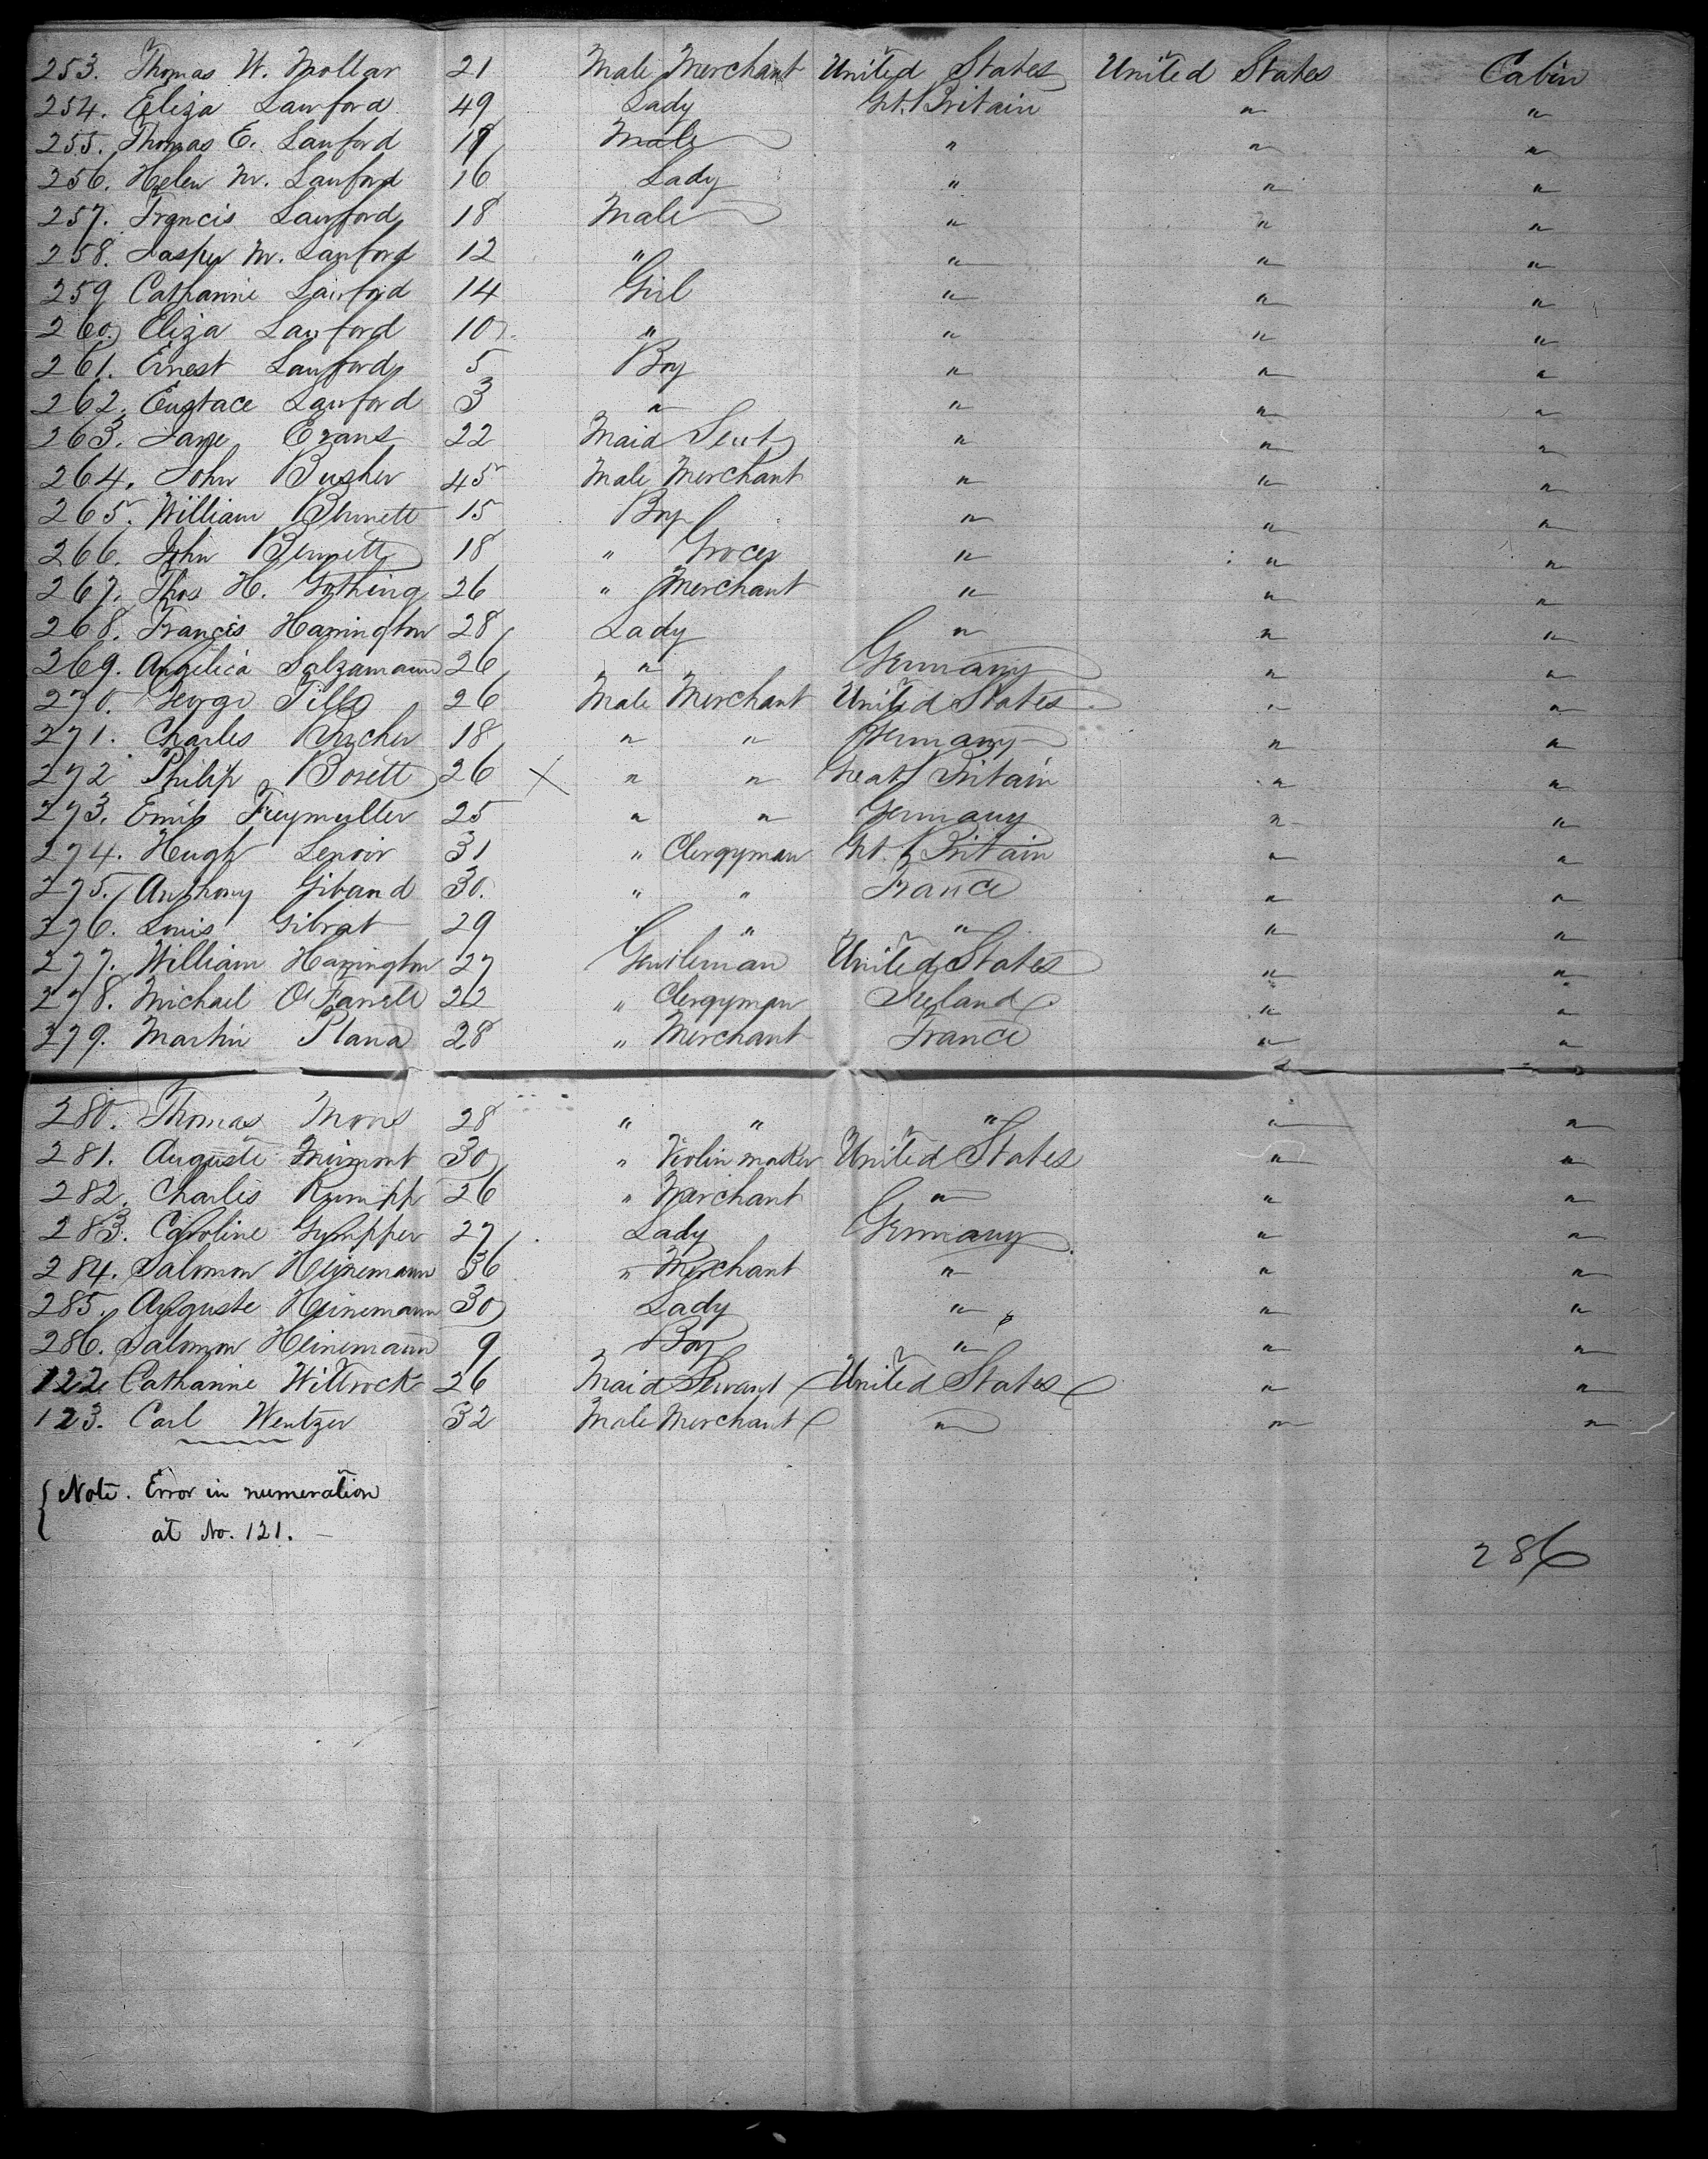 253. Thomas W. Mollar 21 Male Merchant United States United States Cabin
254. Eliza Lawford 49 Lady Gt. Britain " "
255. Thomas E. Lawford 19 Male " " "
256. Helen M. Lawford 16 Lady " " "
257. Francis Lawford 18 Male " " "
258. M. Lawford 12 " " " "
259 Catharine Lawford 14 Girl " " "
260. Eliza Lawford 10 " " " "
261. Ernest Lawford 5 Boy " " "
262. Eustace Lawford 3 " " " "
263. Jane Evans 22 Maid Sevt " " "
264. John Busher 45 Male Merchant " " "
265. William Bennett 15 Boy " " "
266. John Bennett 18 " Grocer " " "
267. Thos H. 26 " Merchant " " "
268. Francis Harrington 28 Lady " " "
269. Angelica Salzamann 26 " Germany " "
270. George 26 Male Merchant United States " "
271. Charles 18 " " Germany " "
272 Philip Bosett 26 X " " Great Britain " "
273. Emil Freymuller 25 " " Germany " "
274. Hugh Lenoir 31 " Clergyman Gt. Britain " "
275. Anthony Giband 30. " " France " "
276. Louis Gibrat 29 " " " " "
277. William Harrington 27 Gentleman United States " "
278. Michael O'Farrell 22 " Clergyman Ireland " "
279. Martin Plana 28 " Merchant France " "
280. Thomas 28 " " " " "
281. Auguste 30 " Violin maker United States " "
282. Charles Rumpp 26 " Merchant " " "
283. Caroline 27 Lady Germany " "
284. Salomon Heinemann 36 " Merchant " " "
285. Auguste Heinemann 30 Lady " " "
286. Salomon Heinemann 9 Boy " " "
122 Catharine Wittrock 26 Maid Servant United States " "
123. Carl Wentzer 32 Male Merchant " " "
Note. Error in numeration
at No. 121.
286